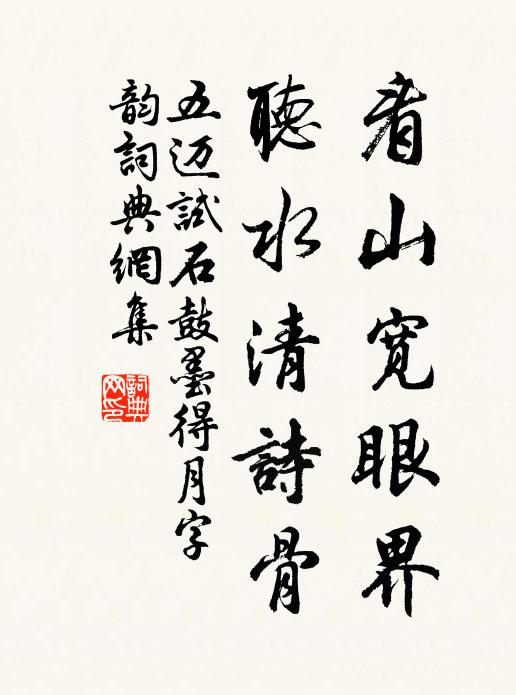 看山宽眼界
聽水清詩骨
五迈試石鼓墨得月字
韵詞典網集
詞典网印